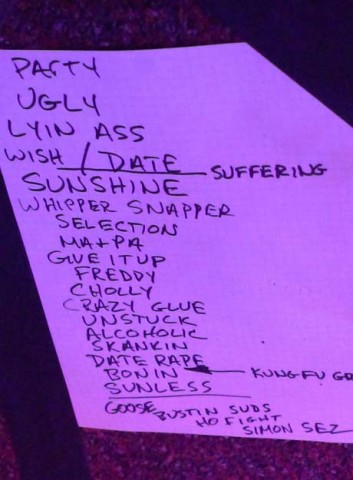 PARTY
UGLY
LYIN ASS
WISH / DATE SUFFERING
SUNSHINE
WHIPPER SNAPPER
SELECTION
MA+PA
GLUE IT UP
FREDDY
CHOLLY
CRAZY GLUE
UNSTUCK
ALCOHOLIC
SKANKIN
DATE RAPE
BONIN KUNG FU
SUNLESS
GOOSE BUSTIN SUDS
NO FIGHT
SIMON SEZ